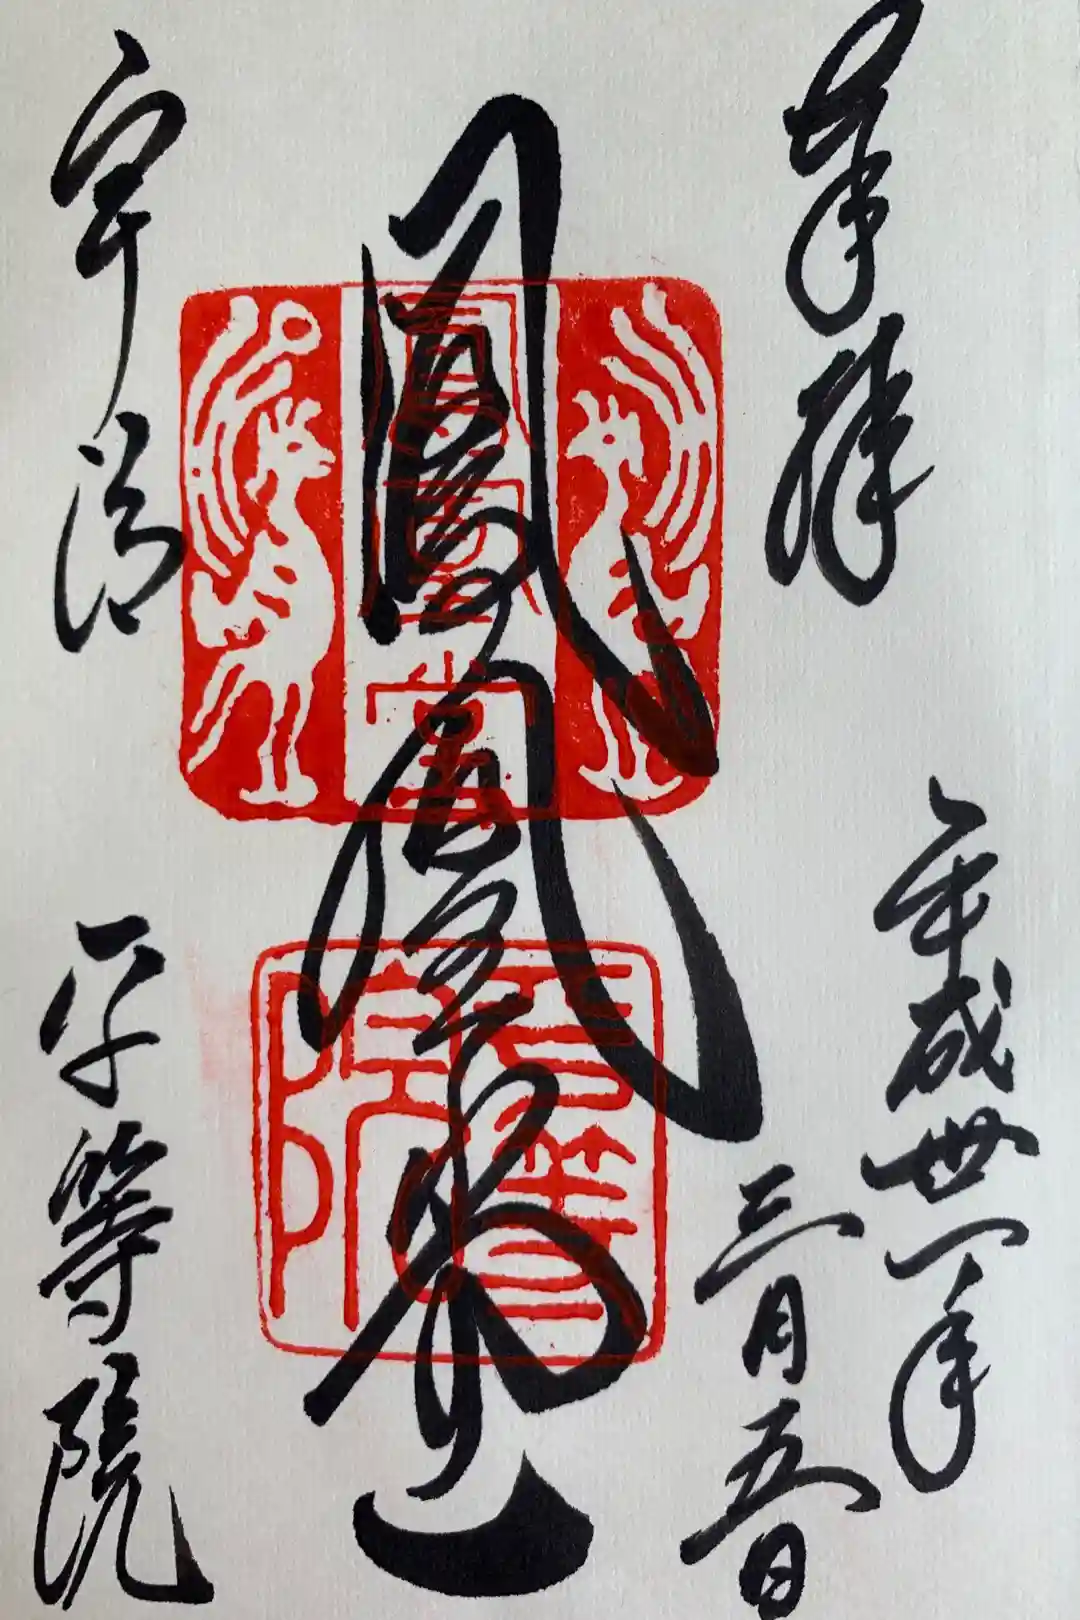 奉拝
平成卅一年
三月五日
鳳凰堂
鳳凰堂
平等院
宇治
平等院